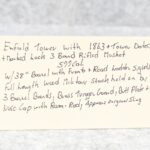 Enfield Tower with 1863 + Tower Dates
+ Marked Lock 3 Band Rifled Musket
.577 Cal.
W/38" Barrel with Front + Rear Ladder Sights
full length Wood Military Stock held on by
3 Barrel Bands, Brass Trigger Guard, Butt Plate +
Nose Cap with Ram-Rod, Appears original Sling